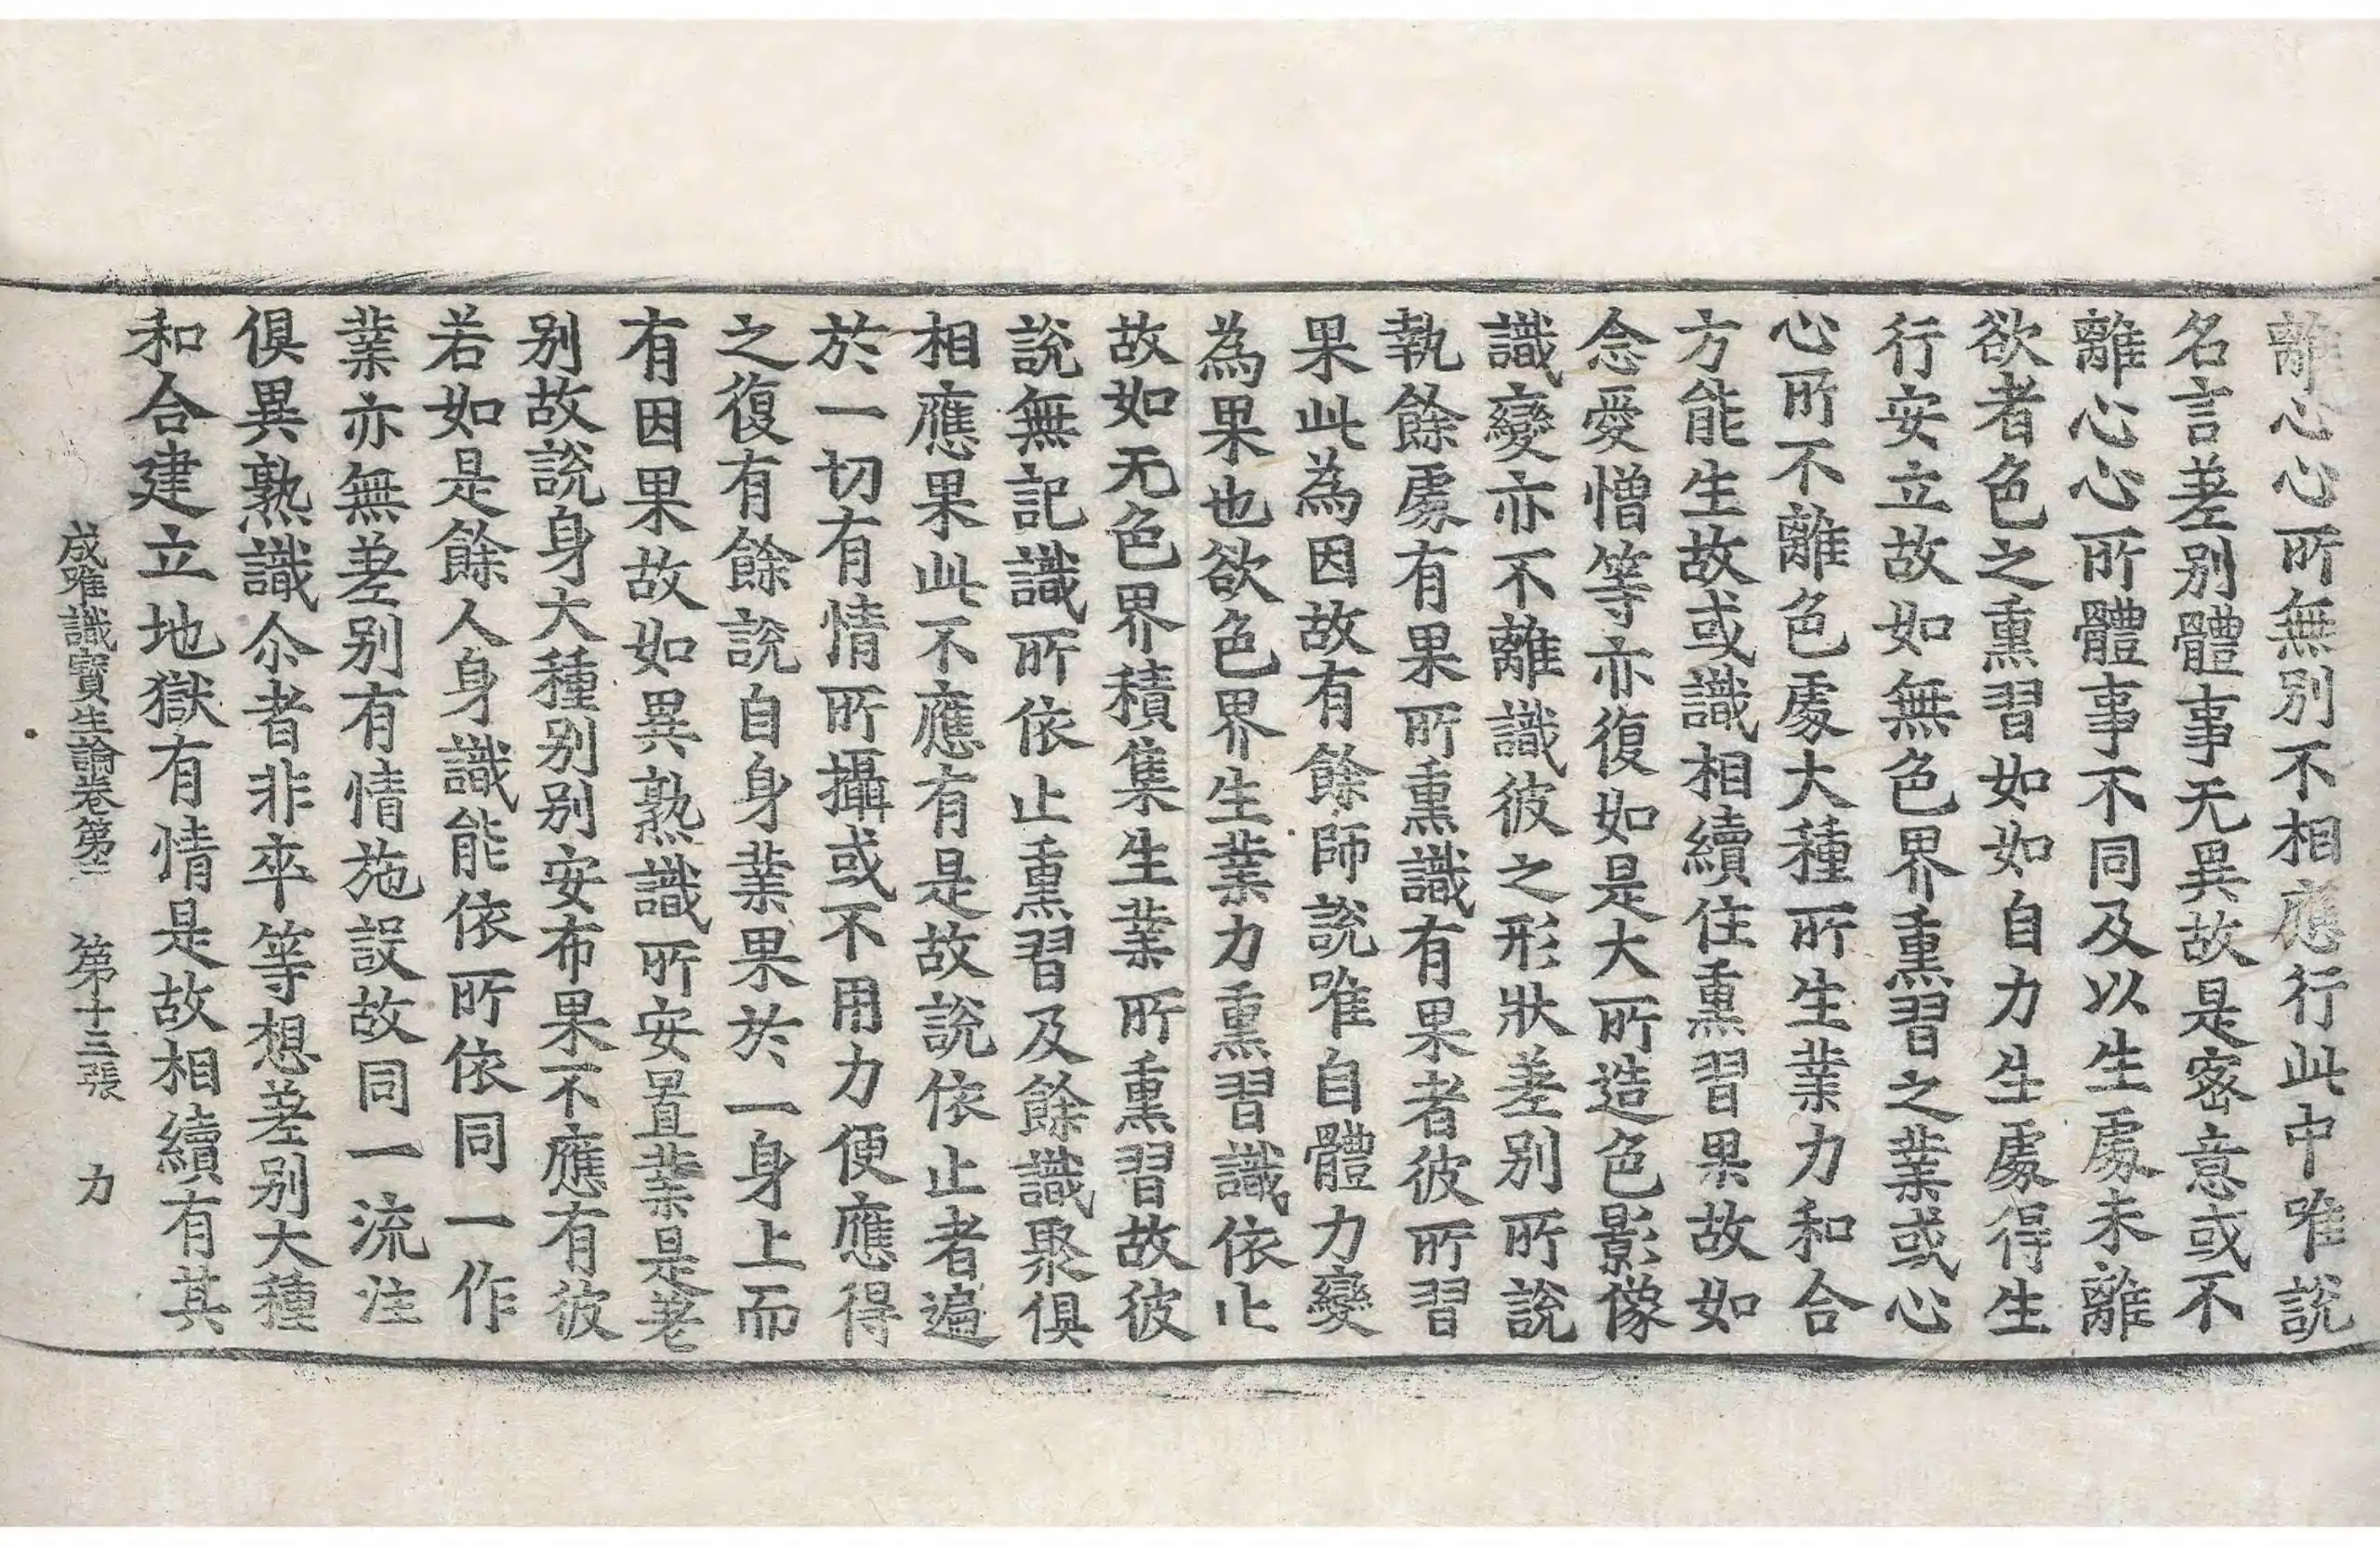 離心心所無別不相應行此中唯說
名言差别體事无異故是密意或不
離心心所體事不同及以生處未離
欲者色之熏習如如自力生處得生
行安立故如無色界熏習之業或心
心所不離色處大種所生業力和合
方能生故或識相續住熏習果故如
念愛憎等亦復如是大所造色影像
識變亦不離識彼之形狀差别所說
執餘處有果所熏識有果者彼所習
果此為因故有餘師說唯自體力變
為果也欲色界生業力熏習識依止
故如无色界積集生業所熏習故彼
說無記識所依止熏習及餘識聚俱
相應果此不應有是故說依止者遍
於一切有情所攝或不用力便應得
之復有餘說自身業果於一身上而
有因果故如異熟識所安置業是老
别故説身大種别别安布果不應有彼
若如是餘人身識能依所依同一作
業亦無差别有情施設故同一流注
俱異熟識尒者非卒等想差别大種
和合建立地獄有情是故相續有其
成唯識寶生論卷第二 第十三張 力